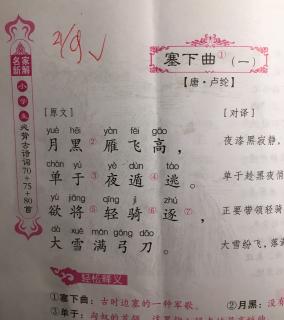 名家新解
小学生必背古诗词70+75+80首
塞下曲①(一)
【唐·卢纶】
[原文]
[对译]
yuè hēi yàn fēi gāo
月黑②雁飞高，
夜漆黑寂静，
chán yú yè dùn táo
单于③夜遁④逃。
单于趁黑夜
yù jiāng qīng jì zhú
欲将⑤轻骑⑥逐⑦，
正要带领轻骑
dà xuě mǎn gōng dāo
大雪满弓刀。
大雪纷飞，落满
轻松释义
①塞下曲：古时边塞的一种军歌。
②月黑：没有
③单于：